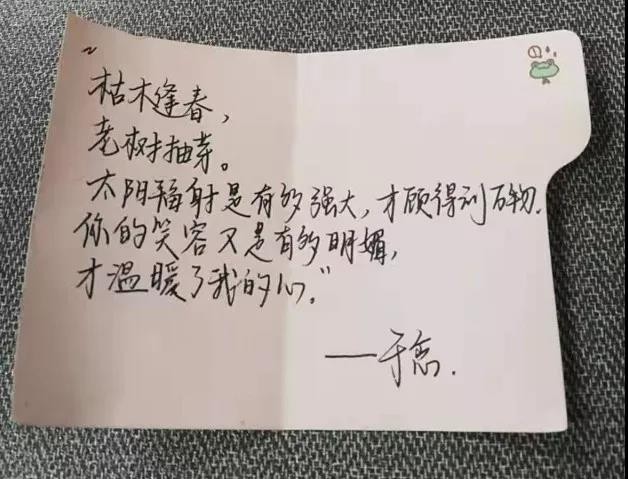 "枯木逢春,
老树抽芽。
太阳辐射是有多强大,才顾得到万物.
你的笑容又是有多明媚,
才温暖了我的心."
——于恋.